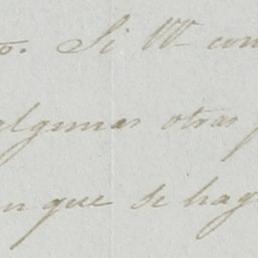 o. Si VV con
algunas otras
n que se hag